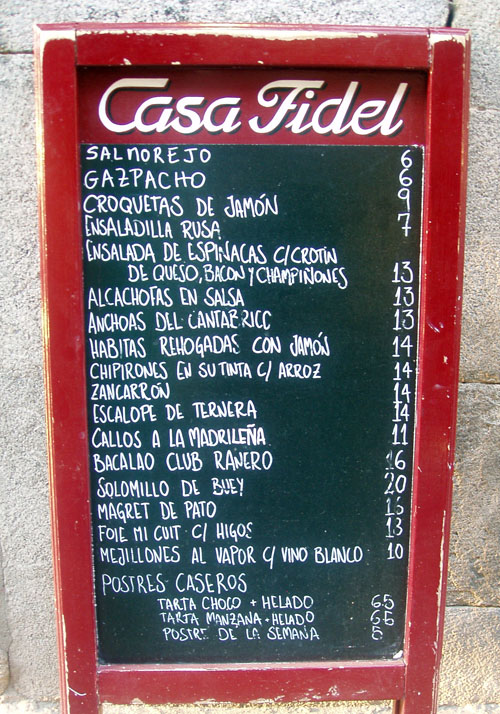 Casa Fidel
SALMOREJO 6
GAZPACHO 6
CROQUETAS DE JAMÓN 9
ENSALADILLA RUSA 7
ENSALADA DE ESPINACAS C/CROTIN
DE QUESO, BACON Y CHAMPIÑONES 13
ALCACHOFAS EN SALSA 13
ANCHOAS DEL CANTABRICO 13
HABITAS REHOGADAS CON JAMÓN 14
CHIPIRONES EN SU TINTA C/ ARROZ 14
ZANCARRÓN 14
ESCALOPE DE TERNERA 14
CALLOS A LA MADRILEÑA 11
BACALAO CLUB RANERO 16
SOLOMILLO DE BUEY 20
MAGRET DE PATO
FOIE MI CUIT C/ HIGOS 13
MEJILLONES AL VAPOR C/ VINO BLANCO 10
POSTRES CASEROS
TARTA CHOCO + HELADO 65
TARTA MANZANA + HELADO
POSTRE DE LA SEMANA